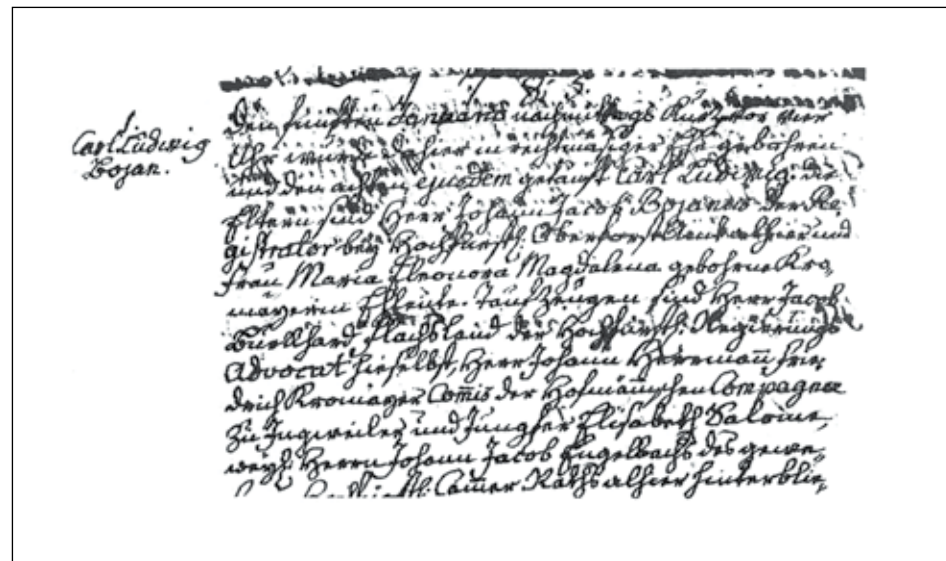 Carl Ludwig
Bojan.
Den fünften Januarii nachmittags kurtz vor vier
Uhr wurde hier in rechtmäsiger Ehe gebohren
und den achten ejusdem getauft Carl Ludwig. die
Eltern sind Herr Johann Jacob Bojanus der Re
gistrator bey Hochfürstl. Oberforstamt alhier und
Frau Maria Eleonora Magdalena gebohrne Kro,
mayerin Eheleute. Tauf Zeugen sind Herr Jacob
Flachsland der Hochfürstl: Regierungs
Advocat hieselbst, Herr Johann Herrmann Frie,
drich Kromayer Com̄is der Hofmännschen Compagnie
zu Ingweiler, und Jungfer Elisabeth Salome,
weyl. Herrn Johann Jacob Engelbachs des gewe,
Cam̄er Raths alhier hinterblie,